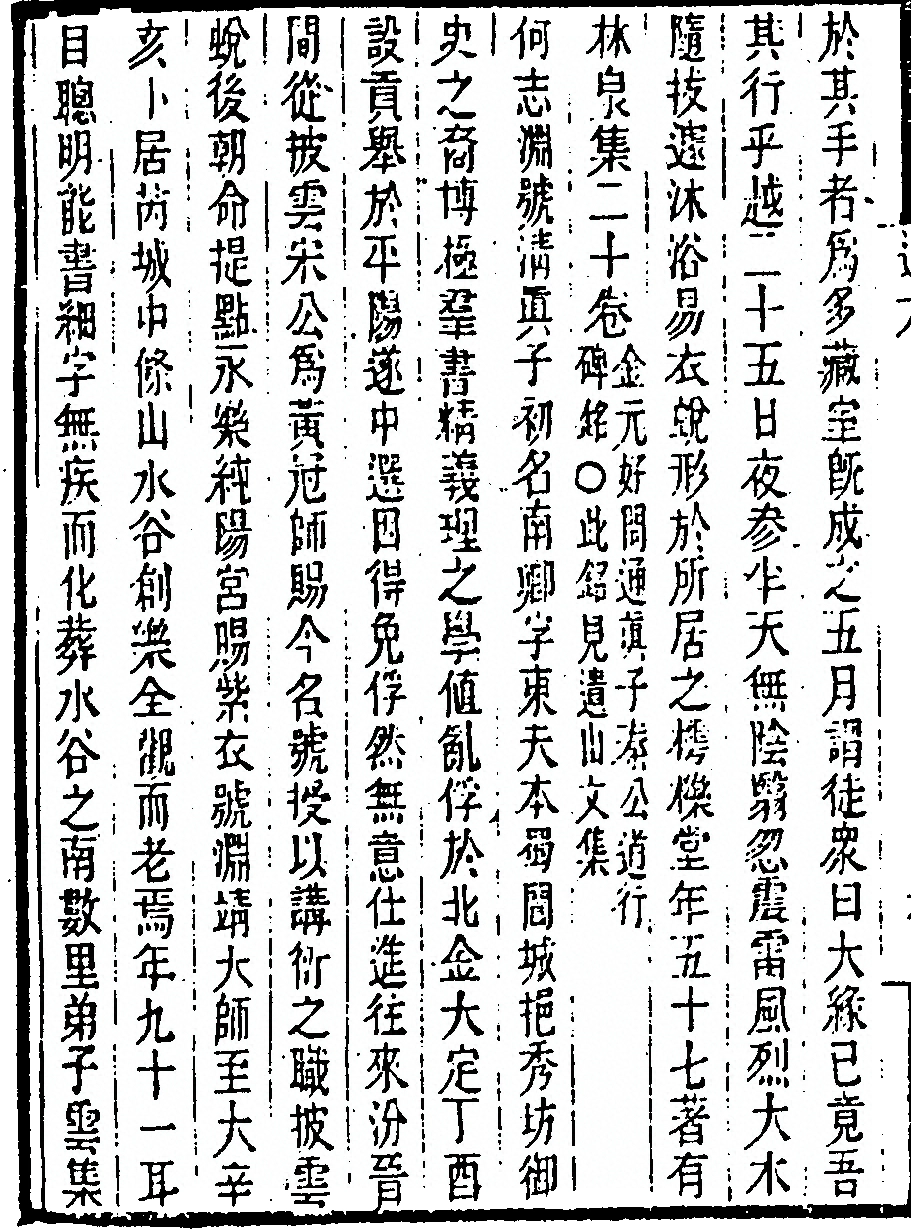 於其手者爲多藏室旣成之五月謂徒衆曰大緣已竟吾
其行乎越二十五日夜參半天無陰翳忽震雷風烈大木
隨拔遽沐浴易衣蛻形於所居之樗櫟堂年五十七著有
林泉集二十卷金元好問通眞子秦公道行
碑銘○此銘見遺山文集
何志淵號淸眞子初名南卿字東夫本蜀閬城挹秀坊御
史之裔博極羣書精義理之學値亂俘於北金大定丁酉
設貢舉於平陽遂中選因得免俘然無意仕進往來汾晉
間從披雲宋公爲黃冠師賜今名號授以講衍之職披雲
蛻後朝命提點永樂純陽宮賜紫衣號淵靖大師至大辛
亥卜居芮城中條山水谷創樂全觀而老焉年九十一耳
目聰明能書細字無疾而化葬水谷之南數里弟子雲集